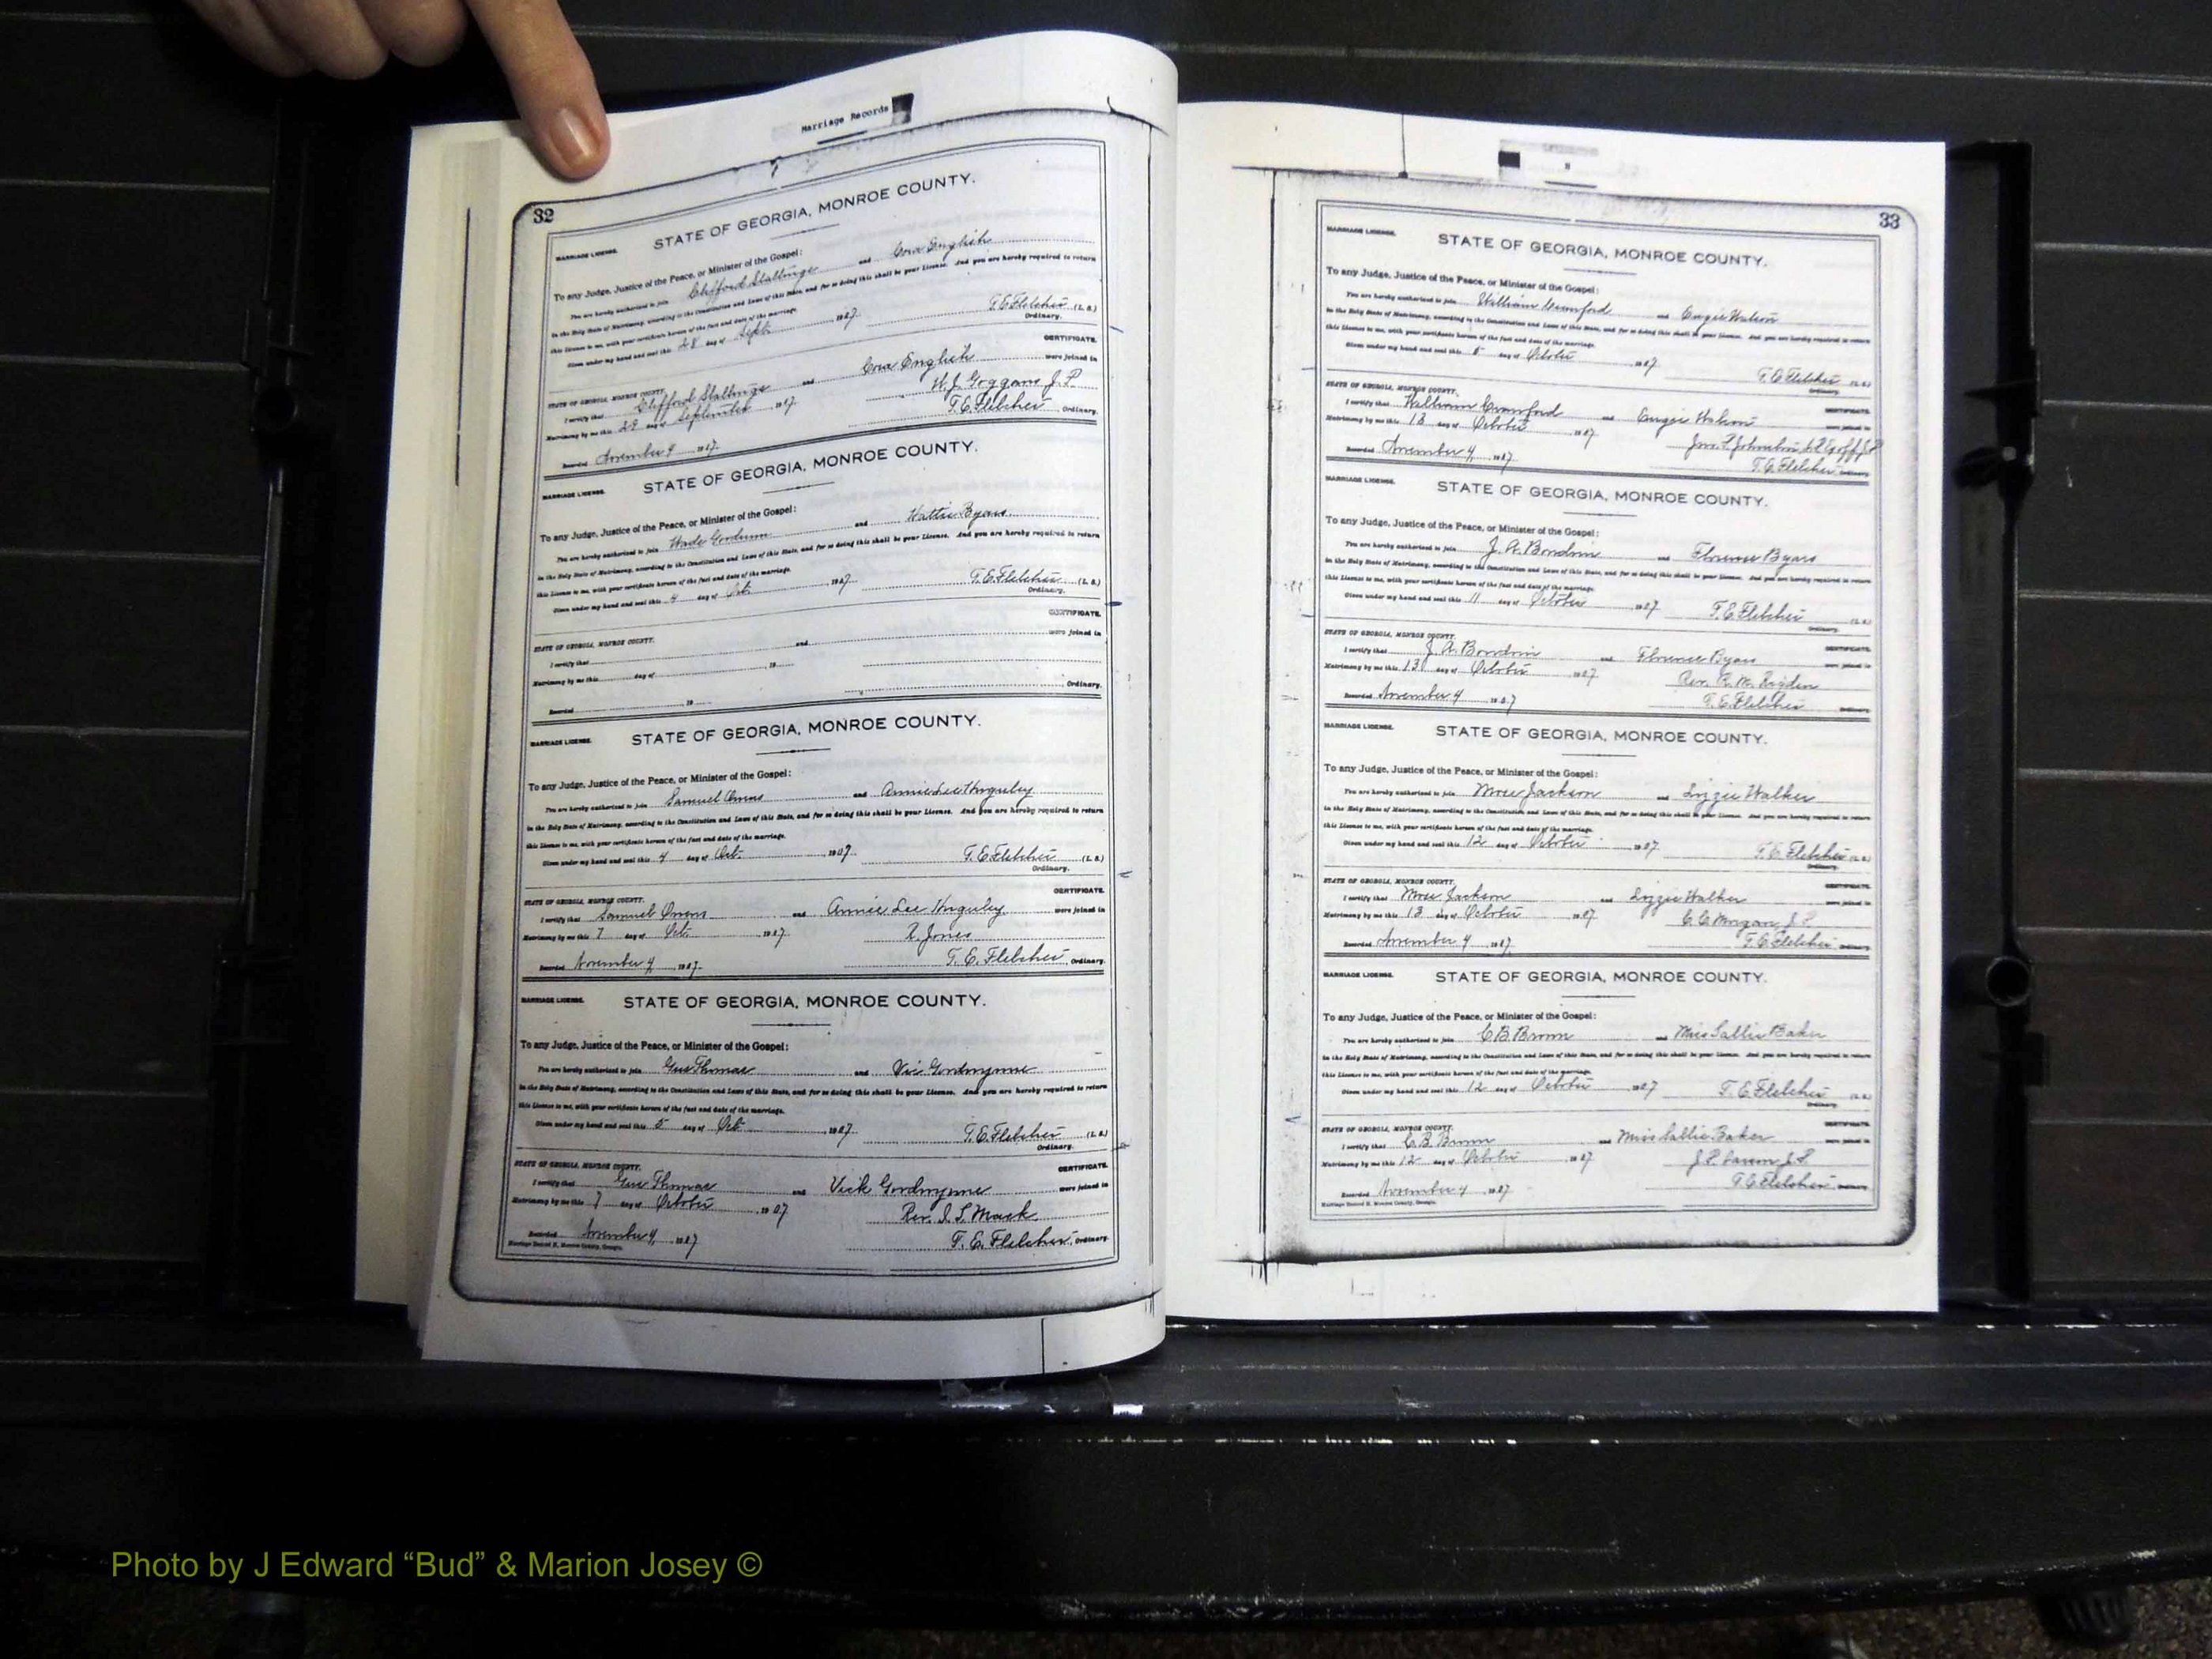 Marriage Records
32
STATE OF GEORGIA, MONROE COUNTY.
MARRIAGE LICENSE.
To any Judge, Justice of the Peace, or Minister of the Gospel:
You are hereby authorized to join Clifford Stallings and Cora English
in the Holy State of Matrimony, according to the Constitution and Laws of this State, and for so doing this shall be your License. And you are hereby required to return
this License to me, with your certificate hereon of the fact and date of the marriage.
Given under my hand and seal this 28 day of Sept. 1907. T. E. Fletcher (L. S.)
Ordinary.
STATE OF GEORGIA, MONROE COUNTY. CERTIFICATE.
I certify that Clifford Stallings and Cora English were joined in
Matrimony by me this 29 day of September 1907. W. J. Goggans J. P.
Recorded November 4 1907. T. E. Fletcher Ordinary.
STATE OF GEORGIA, MONROE COUNTY.
MARRIAGE LICENSE.
To any Judge, Justice of the Peace, or Minister of the Gospel:
You are hereby authorized to join Wade and Byars
in the Holy State of Matrimony, according to the Constitution and Laws of this State, and for so doing this shall be your License. And you are hereby required to return
this License to me, with your certificate hereon of the fact and date of the marriage.
Given under my hand and seal this 4 day of Oct. 1907 T. E. Fletcher (L. S.)
Ordinary.
CERTIFICATE.
STATE OF GEORGIA, MONROE COUNTY.
I certify that and were joined in
Matrimony by me this day of , 19
Recorded 19 Ordinary.
STATE OF GEORGIA, MONROE COUNTY.
MARRIAGE LICENSE.
To any Judge, Justice of the Peace, or Minister of the Gospel:
You are hereby authorized to join Samuel Owens and Annie Lee
in the Holy State of Matrimony, according to the Constitution and Laws of this State, and for so doing this shall be your License. And you are hereby required to return
this License to me, with your certificate hereon of the fact and date of the marriage.
Given under my hand and seal this 4 day of Oct. 1907. T. E. Fletcher (L. S.)
Ordinary.
CERTIFICATE.
STATE OF GEORGIA, MONROE COUNTY.
I certify that Samuel Owens and Annie Lee were joined in
Matrimony by me this 7 day of Oct. 1907. R. Jones
Recorded November 4, 1907. T. E. Fletcher, Ordinary.
MARRIAGE LICENSE. STATE OF GEORGIA, MONROE COUNTY.
To any Judge, Justice of the Peace, or Minister of the Gospel:
You are hereby authorized to join Gus Thomas and Vic
in the Holy State of Matrimony, according to the Constitution and Laws of this State, and for so doing this shall be your License. And you are hereby required to return
this License to me, with your certificate hereon of the fact and date of the marriage.
Given under my hand and seal this 5 day of Oct 1907 T. E. Fletcher (L. S.)
Ordinary.
STATE OF GEORGIA, MONROE COUNTY. CERTIFICATE.
I certify that Gus Thomas and Vick were joined in
Matrimony by me this 7 day of October 1907 Rev. Mack
Recorded November 4, 1907 T. E. Fletcher, Ordinary.
Marriage Record H, Monroe County, Georgia.
33
MARRIAGE LICENSE.
STATE OF GEORGIA, MONROE COUNTY.
To any Judge, Justice of the Peace, or Minister of the Gospel:
You are hereby authorized to join William Crawford and
in the Holy State of Matrimony, according to the Constitution and Laws of this State, and for so doing this shall be your License. And you are hereby required to return
this License to me, with your certificate hereon of the fact and date of the marriage.
Given under my hand and seal this 5 day of October 1907. T. E. Fletcher (L. S.)
Ordinary.
STATE OF GEORGIA, MONROE COUNTY. CERTIFICATE.
I certify that William Crawford and were joined in
Matrimony by me this 13 day of October 1907.
Recorded November 4, 1907. T. E. Fletcher Ordinary.
MARRIAGE LICENSE.
STATE OF GEORGIA, MONROE COUNTY.
To any Judge, Justice of the Peace, or Minister of the Gospel:
You are hereby authorized to join J. A. and Florence Byars
in the Holy State of Matrimony, according to the Constitution and Laws of this State, and for so doing this shall be your License. And you are hereby required to return
this License to me, with your certificate hereon of the fact and date of the marriage.
Given under my hand and seal this 11 day of October 1907 T. E. Fletcher (L. S.)
Ordinary.
STATE OF GEORGIA, MONROE COUNTY. CERTIFICATE.
I certify that J. A. and Florence Byars were joined in
Matrimony by me this 13 day of October 1907. Rev. R. M.
Recorded November 4 1907 T. E. Fletcher Ordinary.
MARRIAGE LICENSE.
STATE OF GEORGIA, MONROE COUNTY.
To any Judge, Justice of the Peace, or Minister of the Gospel:
You are hereby authorized to join Mose Jackson and Lizzie Walker
in the Holy State of Matrimony, according to the Constitution and Laws of this State, and for so doing this shall be your License. And you are hereby required to return
this License to me, with your certificate hereon of the fact and date of the marriage.
Given under my hand and seal this 12 day of October 1907 T. E. Fletcher (L. S.)
Ordinary.
STATE OF GEORGIA, MONROE COUNTY. CERTIFICATE.
I certify that Mose Jackson and Lizzie Walker were joined in
Matrimony by me this 13 day of October 1907. C. C. Morgan J. P.
Recorded November 4 1907. T. E. Fletcher Ordinary.
MARRIAGE LICENSE. STATE OF GEORGIA, MONROE COUNTY.
To any Judge, Justice of the Peace, or Minister of the Gospel:
You are hereby authorized to join C. B. Brown and Miss Sallie Baker
in the Holy State of Matrimony, according to the Constitution and Laws of this State, and for so doing this shall be your License. And you are hereby required to return
this License to me, with your certificate hereon of the fact and date of the marriage.
Given under my hand and seal this 12 day of October 1907 T. E. Fletcher (L. S.)
Ordinary.
STATE OF GEORGIA, MONROE COUNTY. CERTIFICATE.
I certify that C. B. Brown and Miss Sallie Baker were joined in
Matrimony by me this 12 day of October 1907 J. P.
Recorded November 4 1907 T. E. Fletcher Ordinary.
Marriage Record H, Monroe County, Georgia.
Photo by J Edward “Bud” & Marion Josey ©